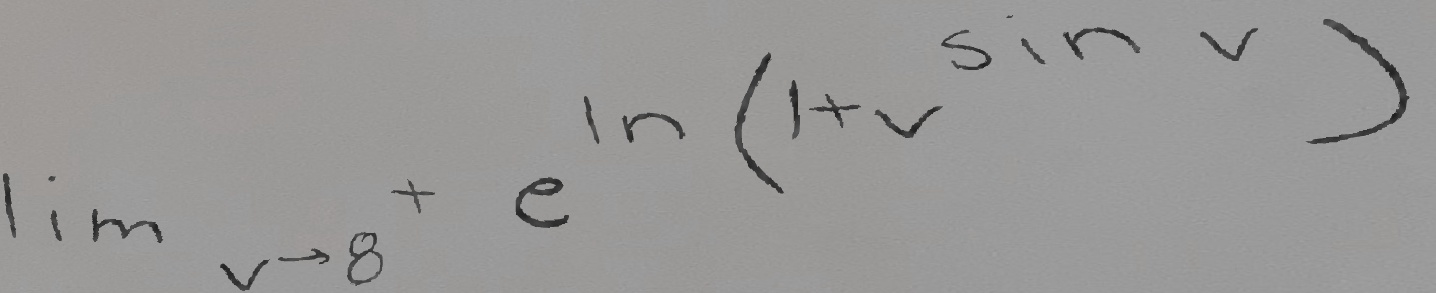 lim_{v→8^+} e^{ln(1+v^{sin v})}